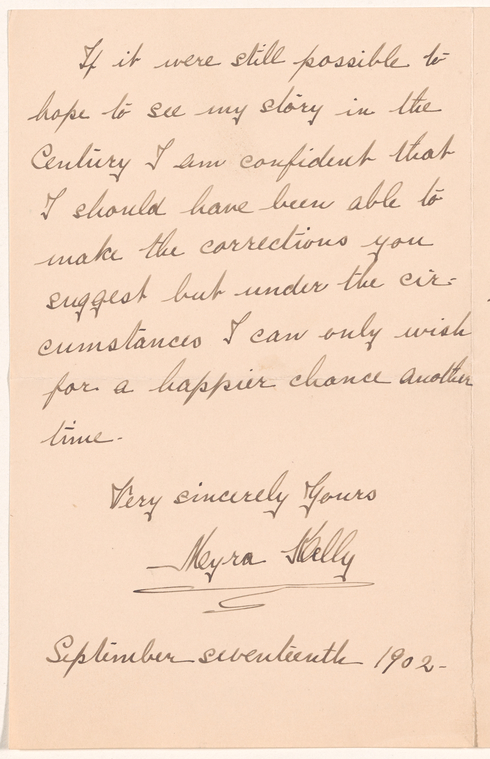 If it were still possible to
hope to see my story in the
Century I am confident that
I should have been able to
make the corrections you
suggest but under the cir-
cumstances I can only wish
for a happier chance another
time.
Very sincerely Yours
Myra Kelly
September seventeenth 1902-